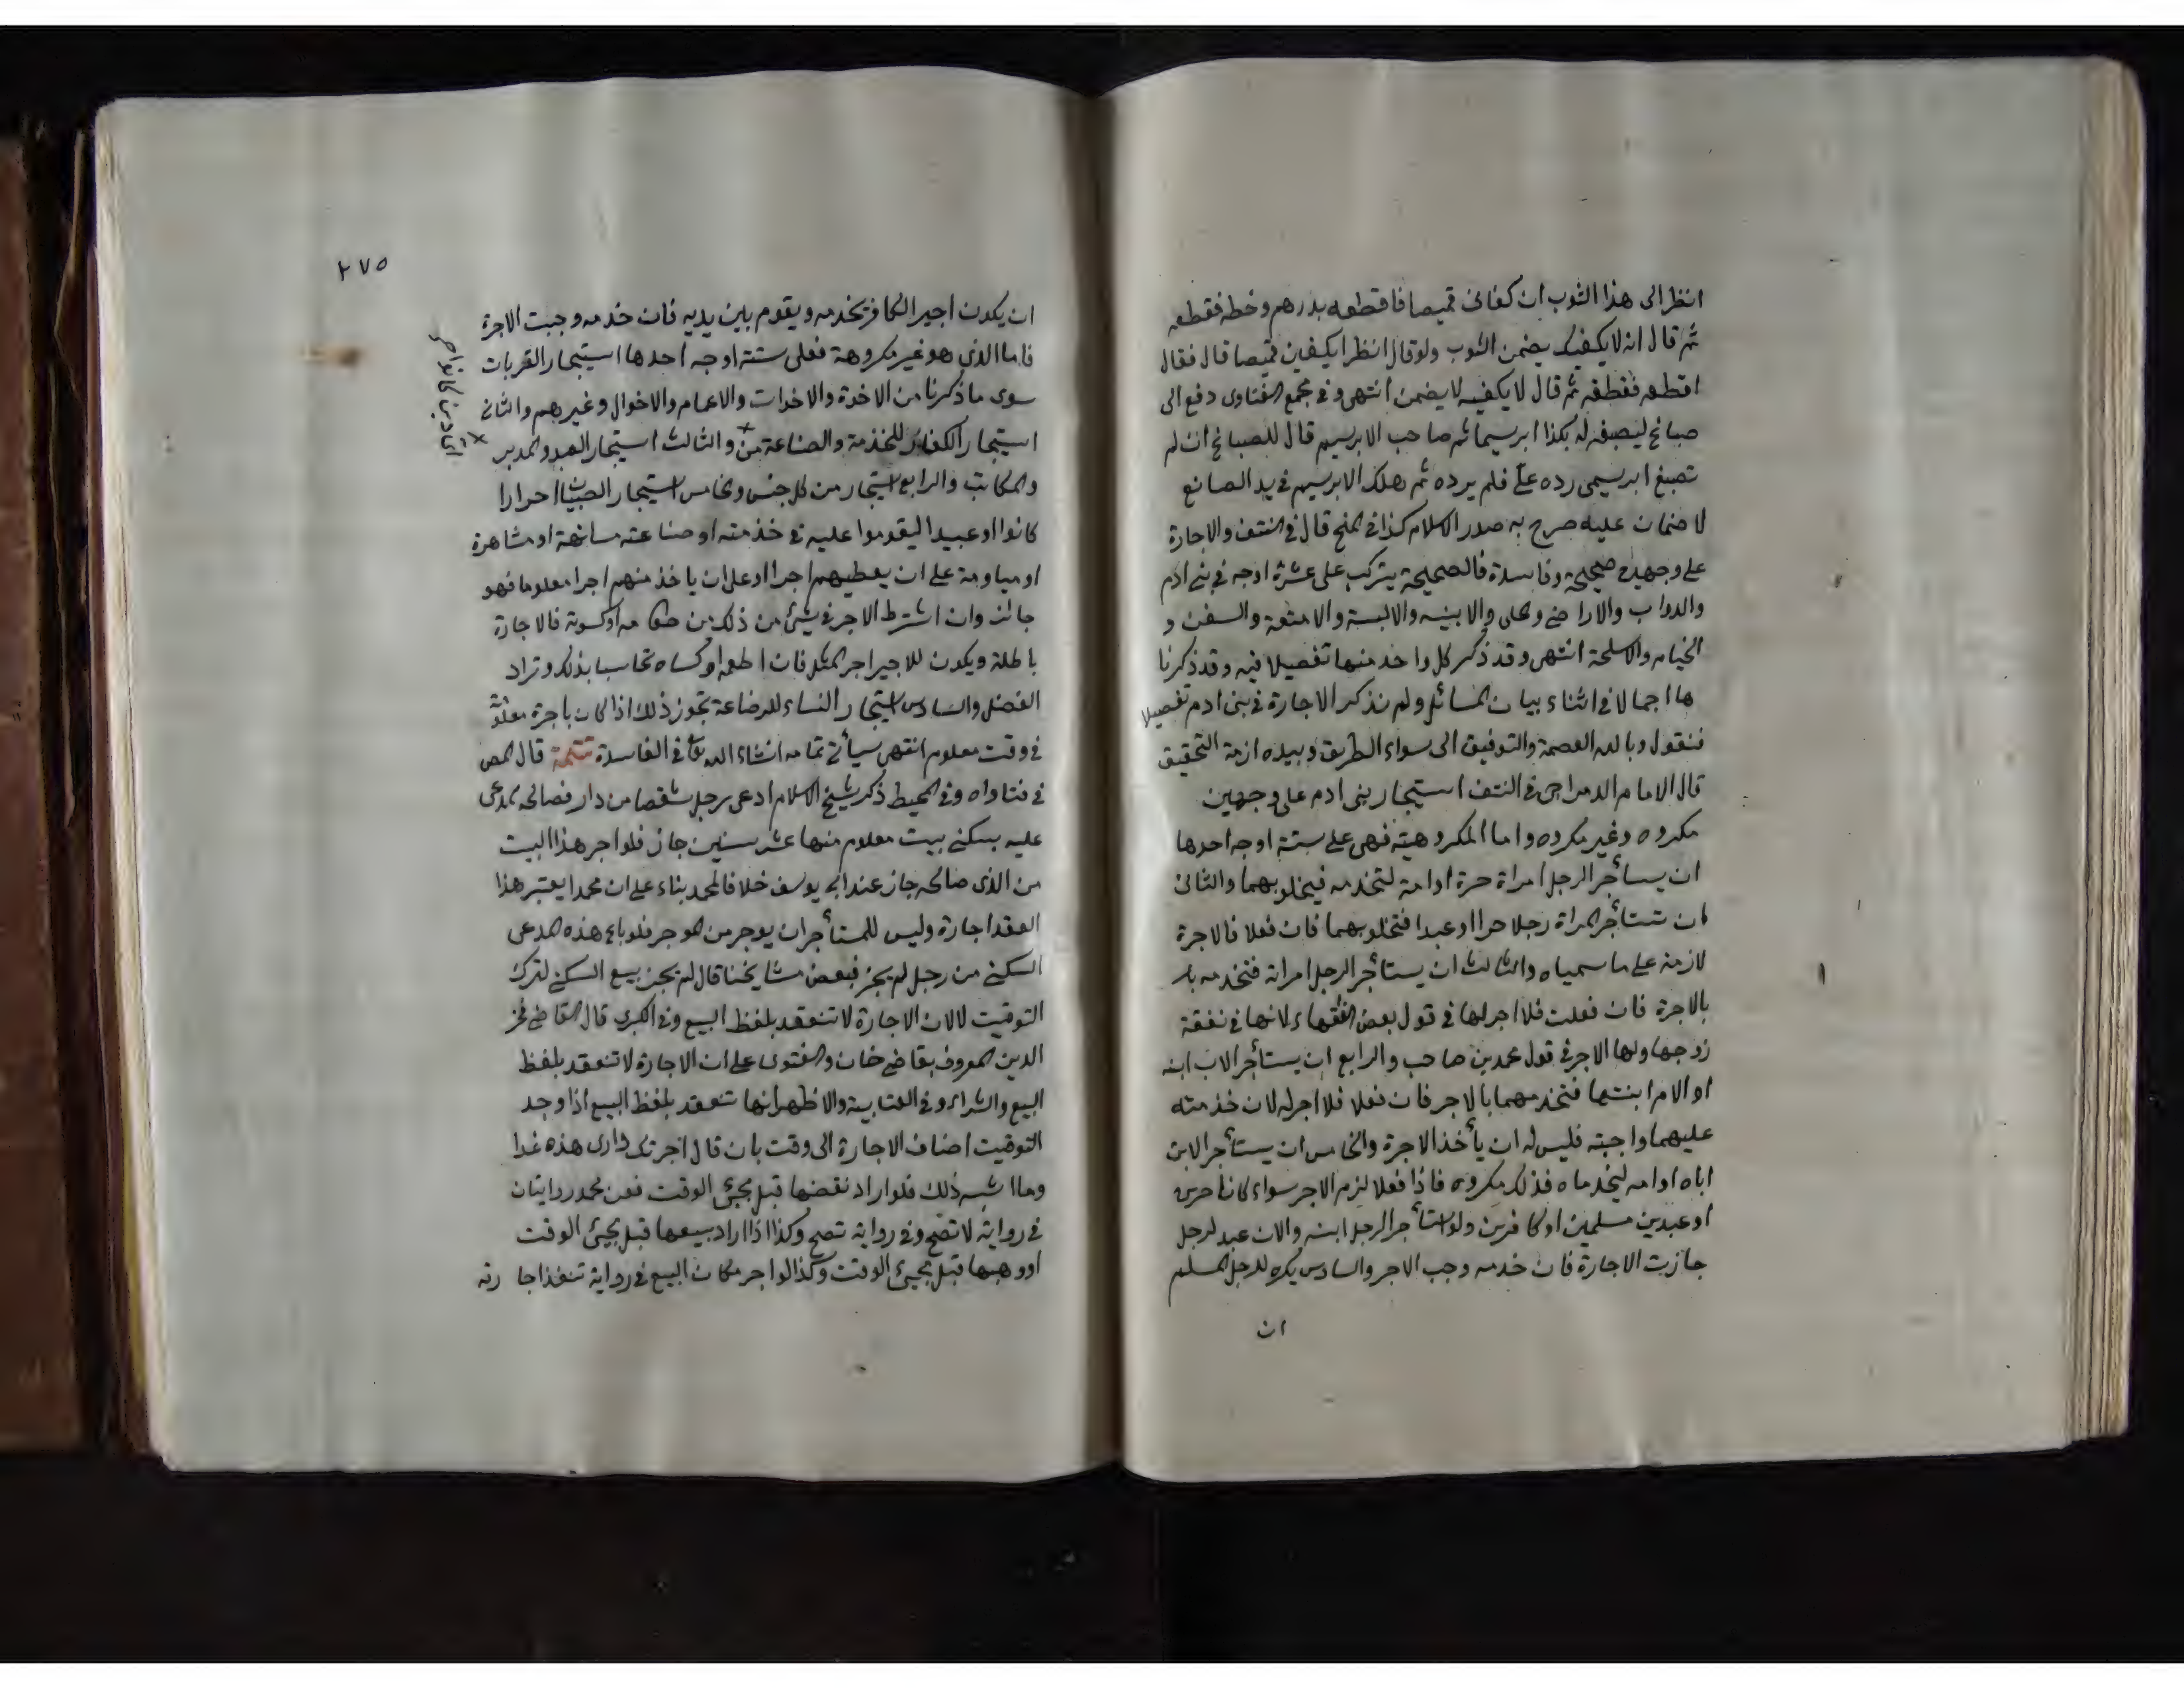 انظر الى هذا الثوب ان كفانى قميصا فاقطعه بدرهم وخطه فقطعه
ثم قال انه لا يكفيك يضمن الثوب ولو قال انظر ايكفين قميصا قال فقال
اقطعه فقطعه ثم قال لا يكفيه لا يضمن انتهى وفى مجمع الفتاوى دفع الى
صباغ ليصبغه له بكذا ابريسما ثم صاحب الابريسم قال للصباغ ان لم
تصبغ ابريسمى رده علىّ فلم يرده ثم هلك الابريسم فى يد الصانع
لا ضمان عليه صرح به صدر الاسلام كذا فى المنح قال فى النتف والاجارة
على وجهين صحيحة وفاسدة فالصحيحة يتركب على عشرة اوجه فى بنى ادم
والدواب والاراضى والحلى والابنيه والالبسة والامتعة والسفن و
الخيام والاسلحة انتهى وقد ذكر كل واحد منها تفصيلا فيه وقد ذكرنا
ها اجمالا فى اثناء بيان المسائل ولم نذكر الاجارة فى بنى ادم تفصيلا
فنقول وبالله العصمة والتوفيق الى سواء الطريق وبيده ازمة التحقيق
قال الامام فى النتف استيجار بنى ادم على وجهين
مكروه وغير مكروه واما المكروهية فهى على ستة اوجه احدها
ان يستأجر الرجل امراة حرة او امة لتخدمه فيخلو بهما والثانى
ان تستأجر المراة رجلا حرا او عبدا فتخلو بهما فان فعلا فالاجرة
لازمة على ما سمياه والثالث ان يستأجر الرجل امراته فتخدمه با
بالاجرة فان فعلت فلا اجر لها فى قول بعض الفقهاء لانها فى نفقة
زوجها ولها الاجر فى قول محمد بن صاحب والرابع ان يستأجر الاب ابنه
او الام ابنتها فتخدمهما بالاجر فان فعلا فلا اجر له لان خدمته
عليهما واجبة فليس له ان يأخذ الاجرة والخامس ان يستأجر الابن
اباه او امه ليخدماه فذلك مكروه فاذا فعلا لزم الاجر سواء كانا حرين
او عبدين مسلمين او كافرين ولو استأجر الرجل ابنه والابن عبد لرجل
جازت الاجارة فان خدمه وجب الاجر والسادس يكره للرجل المسلم
ان
٢٧٥
ان يكون اجير الكافر يخدمه ويقوم بين يديه فان خدمه وجبت الاجرة
فاما الذى هو غير مكروهة فعلى ستة اوجه احدها استيجار القربات
سوى ما ذكرنا من الاخوة والاخوات والاعمام والاخوال وغيرهم والثانى
استيجار الكفار للخدمة والصناعة من والثالث استيجار العبد والمدبر
والمكاتب والرابع استيجار من كل جنس والخامس استيجار الصبيان احرارا
كانوا او عبيدا ليقوموا عليه فى خدمته او صناعته مسانهة او مشاهرة
او مياومة على ان يعطيهم اجرا او على ان ياخذ منهم اجرا معلوما فهو
جائز وان اشترط الاجر فى شيئ من ذلك من طعامه او كسوته فالاجارة
باطلة ويكون للاجير اجر المثل فان اطعمه او كساه تحاسبا بذلك وتراد
الفضل والسادس استيجار النساء للرضاعة تجوز ذلك اذا كان باجرة معلومة
فى وقت معلوم انتهى سيأتى تمامه انشاء الله تع فى الفاسدة تتمة قال المص
فى فتاواه وفى المحيط ذكر شيخ الاسلام ادعى رجل شقصا من دار فصالحه المدعى
عليه بسكنى بيت معلوم منها عشر سنين جاز فلو اجر هذا البيت
من الذى صالحه جاز عند ابى يوسف خلافا لمحمد بناء على ان محمدا يعتبر هذا
العقد اجارة وليس للمستأجر ان يوجر من الموجر فلو باع هذه المدعى
السكنى من رجل لم يجز فبعض مشايخنا قال لم يجز بيع السكنى لترك
التوقيت لا لان الاجارة لا تنعقد بلفظ البيع وفى الكبرى قال القاضى فخر
الدين المعروف بقاضى خان والفتوى على ان الاجارة لا تنعقد بلفظ
البيع والشراء وفى العتابية والاظهر انها تنعقد بلفظ البيع اذا وجد
التوقيت اضاف الاجارة الى وقت بان قال اجرتك دارى هذه غدا
وما اشبه ذلك فلو اراد نقضها قبل مجيئ الوقت فعن محمد روايتان
فى رواية لا تصح وفى رواية تصح وكذا اذا اراد بيعها قبل مجيئ الوقت
او وهبها قبل مجيئ الوقت وكذا لو اجر مكان البيع فى رواية تنفذ اجا رته